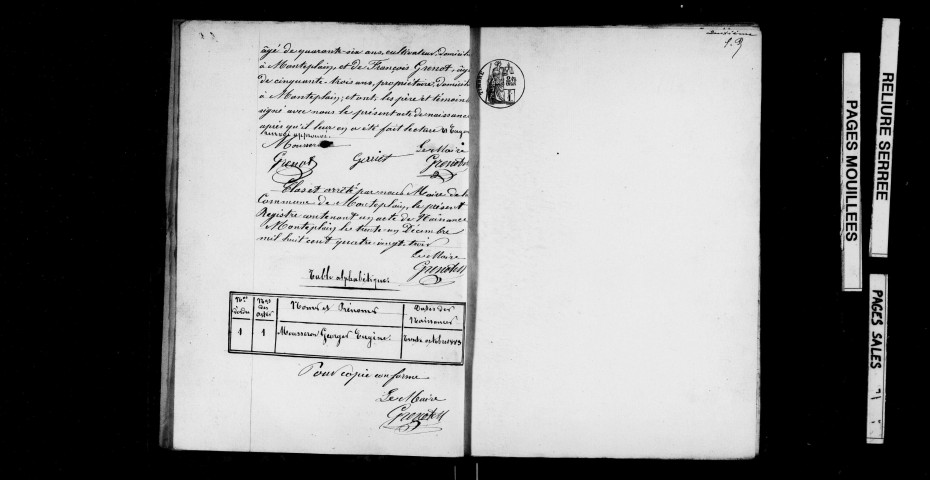 âgé de quarante-six ans, cultivateur, domicilié
à Monteplain, et de François Grenot, âgé
de cinquante-trois ans, propriétaire, domicilié
à Monteplain; et ont, les père et témoins
signé avec nous le présent acte de naissance
après qu'il leur en a été fait lecture
Le Maire
Grenot Gerriet Grenot
Clos et arrêté par nous Maire de la
Commune de Monteplain, le présent
Registre contenant un acte de Naissance
Monteplain le trente un Décembre
mil huit cent quatre vingt trois
Le Maire
Grenot
Table alphabétique
Nos d'ordre Nos des actes Noms et Prénoms Dates des Naissances
1 1 Mousseron Georges Eugène Trente octobre 1883
Pour copie conforme
Le Maire
Grenot
RELIURE SERREE
PAGES MOUILLEES
PAGES SALES